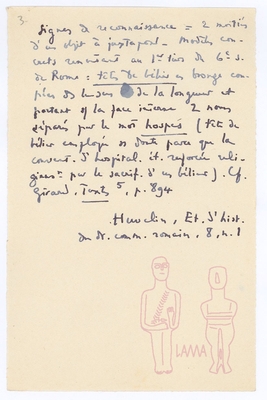 3.
Signes de reconnaissance = 2 moitiés
d'un objet à juxtaposer - Modèles con-
crets remontant au 1er tiers du 6e s.
de Rome : têtes de bélier en bronze cou-
pées ds le sens de la longueur et
portant s/ la face interne 2 noms
séparés par le mot hospes (tête de
bélier employée ss doute parce que la
convent. d'hospital. ét. renforcée reli-
gieust par le sacrif. d'un bélier). Cf.
Girard, Textes 5, p. 894
Huvelin, Et. d'hist.
du dt. comm. romain, 8, n. 1
LAMA